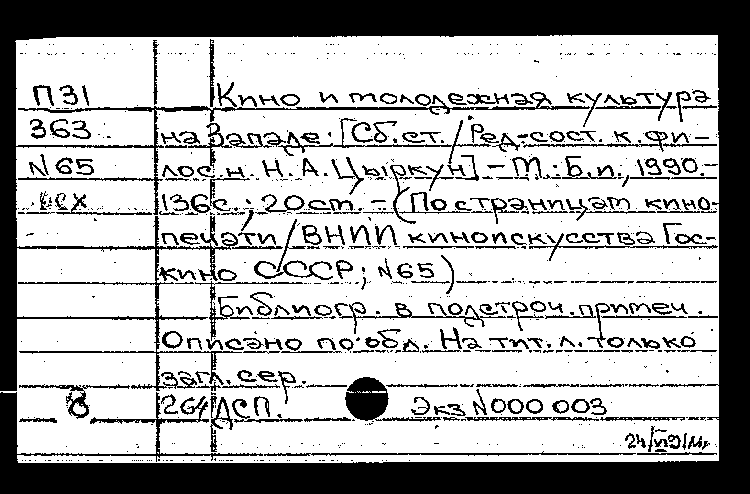 П31 Кино и молодежная культура
363 на Западе: [Сб.ст./Ред.-сост. к.фи-
N65 лос.н. Н.А.Цыркун].-М.:Б.и.,1990.-
136с.; 20см. - (По страницам кино-
печати/ВНИИ киноискусства Гос-
кино СССР; N65)
Библиогр. в подстроч.примеч.
Описано по обл. На тит.л. только
загл.сер.
8 264 ДСП. Экз N000 003